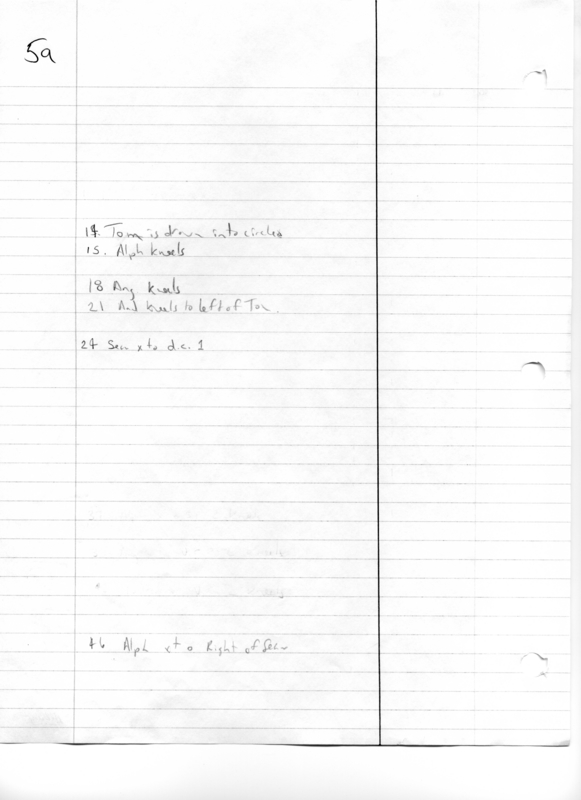 5a
14. Tom is drawn into circle
15. Alph kneels
18 Ang kneels
21 And kneels to left of Tom.
24 Sew x to d.c. 1
46 Alph x to Right of Sew